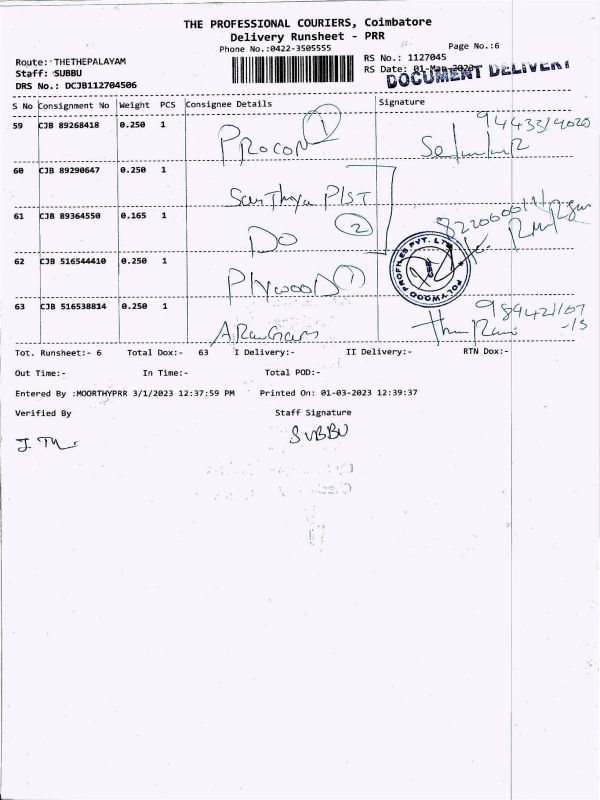 THE PROFESSIONAL COURIERS, Coimbatore
Delivery Runsheet - PRR
Phone No.:0422-3505555
Page No.:6
Route: THETHEPALAYAM
RS No.: 1127045
Staff: SUBBU
RS Date: 01-Mar-2023
DRS No.: DCJB112704506
DOCUMENT DELIVERY
S No Consignment No Weight PCS Consignee Details Signature
59 CJB 89268418 0.250 1
PROCON 1
60 CJB 89290647 0.250 1
61 CJB 89364550 0.165 1
DO 2
62 CJB 516544410 0.250 1
PlywooD 1
POLYWOOD PROFILES PVT. LTD
CBE
63 CJB 516538814 0.250 1
Tot. Runsheet:- 6 Total Dox:- 63 I Delivery:- II Delivery:- RTN Dox:-
Out Time:- In Time:- Total POD:-
Entered By :MOORTHYPRR 3/1/2023 12:37:59 PM Printed On: 01-03-2023 12:39:37
Verified By Staff Signature
SUBBU